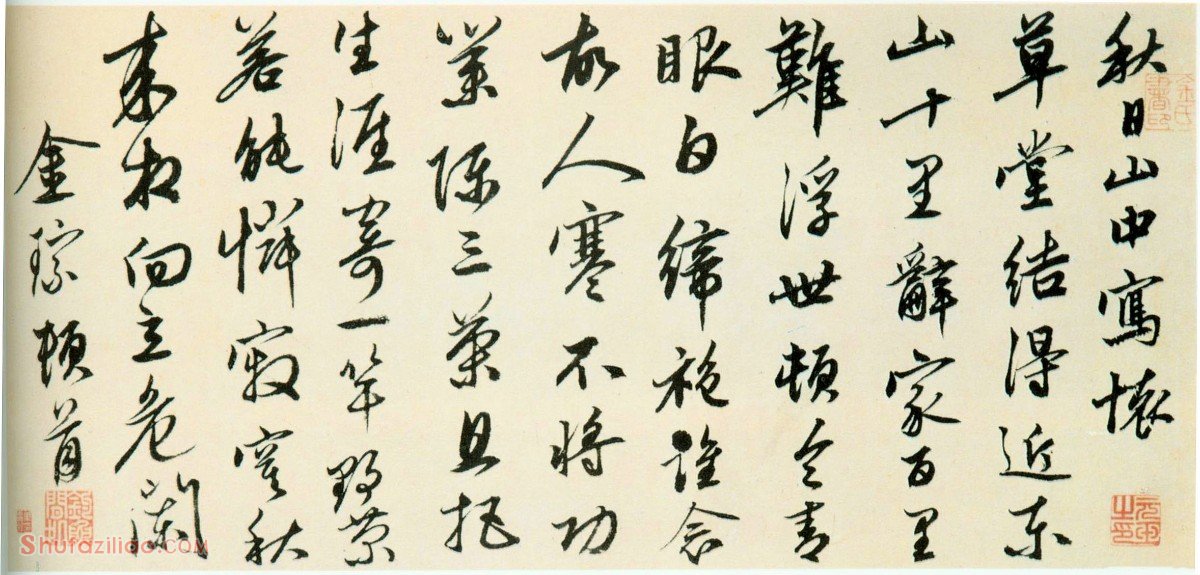 秋日山中寫懷
草堂結得近東
山十里辭家百里
難浮世頓令青
眼白綈袍誰念
故人寒不將功
業陳三策且把
生涯寄一竿野菊
若能憐寂寞秋
來相向立危闌
金琮頓首
Shufaziliao.com